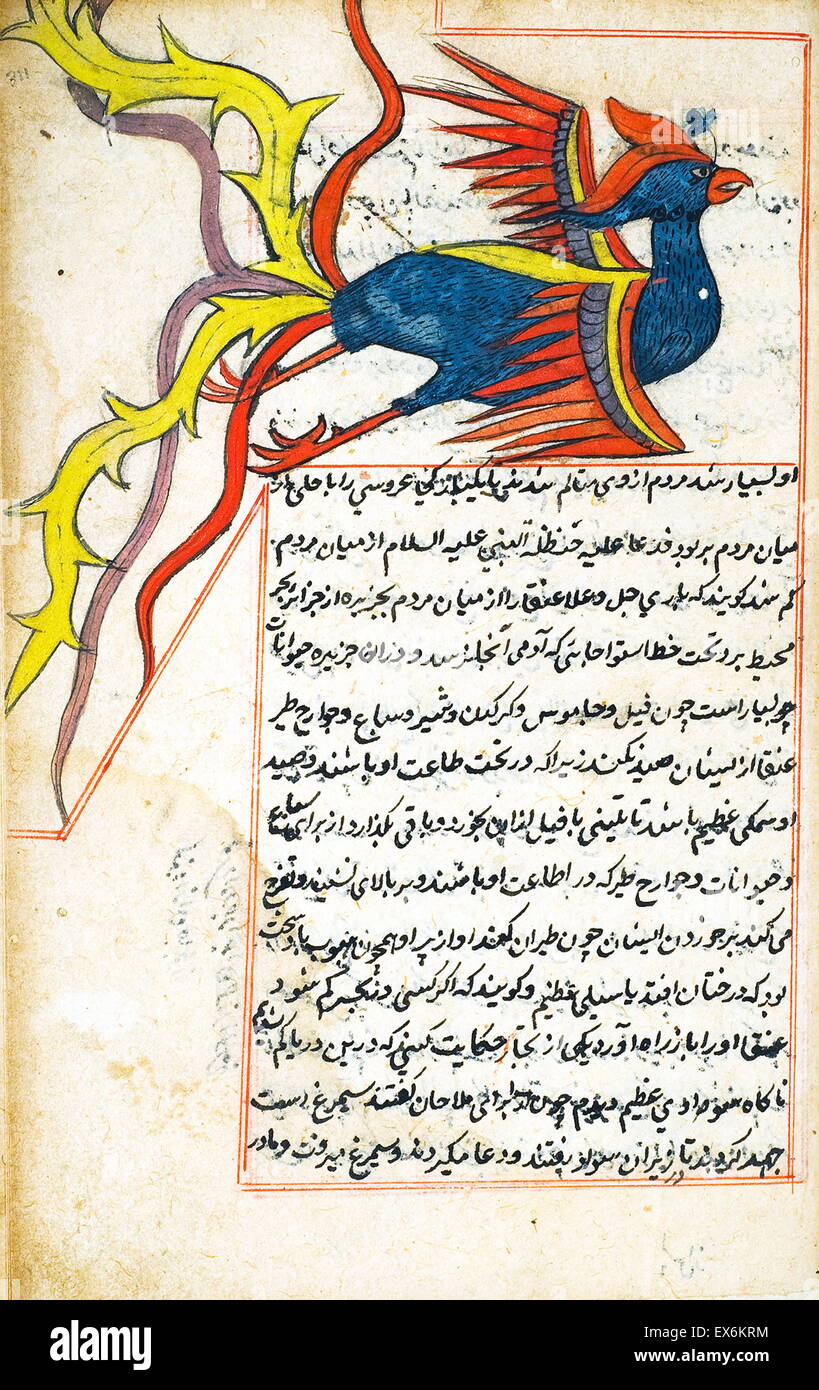 او بسیار شد مردم ازوی متالم شدندی تا یکبار کی عروسی را با حلی از
میان مردم بربود فدعا علیه حنظلة النبی علیه السلام از میان مردم
کم شد کویند که باری جل و علا عنقا را از میان مردم بجزیره از جزایر بحر
محیط برد تحت خط استوا جایی که آدمی آنجا نرسد و دران جزیره حیوانات
بسیار است چون فیل و جاموس و کرکدن و شیر و سباع و جوارح طیر
عنقا از ایشان صید نکند زیرا که در تحت طاعت او باشند و صید
او سمکی عظیم باشد تا تنینی یا فیل ازان بخورد و باقی بگذارد از برای سباع
و حیوانات و جوارح طیر که در اطاعت او باشند و بر بالای نشیند و تفرج
می کند بر خوردن ایشان چون طیران کند اواز پر او همچون هبوب باد سخت
بود که درختان افتد یا سیلی عظیم و کویند که اکر کسی در بحر کم شود
عنقا او را باز راه آورد یکی از تجار حکایت کند که درین دریا کم شدیم
ناکاه سوادی عظیم دیدم چون ملاحان کفتند سیمرغ است
جهد کردند تا زیر آن سواد رفتند و دعا میکردند و سیمرغ میرفت و مادر
alamy
a
alamy
EX6KRM
www.alamy.com